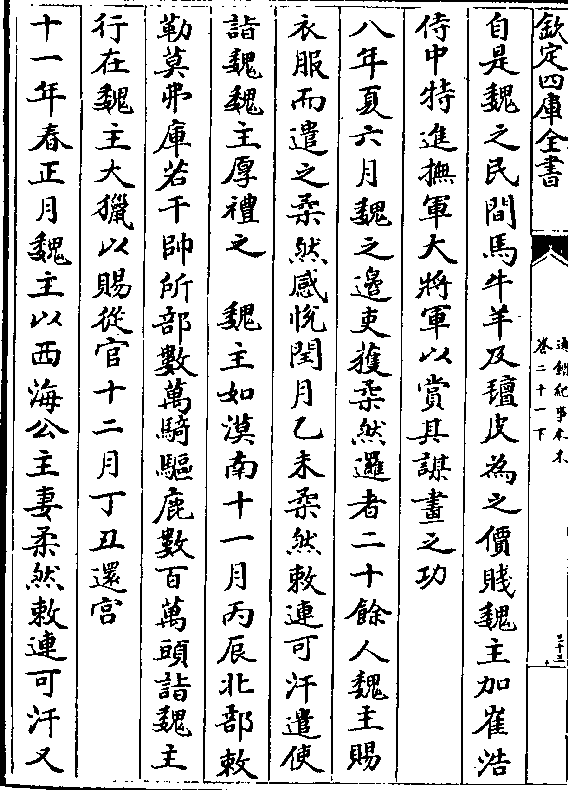 欽定四庫全書
通鑑紀事本末
卷二十一下
二十三
自是魏之民間馬牛羊及氊皮為之價賤魏主加崔浩
侍中特進撫軍大將軍以賞其謀畫之功
八年夏六月魏之邊吏獲柔然邏者二十餘人魏主賜
衣服而遣之柔然感悅閏月乙未柔然敕連可汗遣使
詣魏魏主厚禮之　魏主如漠南十一月丙辰北部敕
勒莫弗庫若干帥所部數萬騎驅鹿數百萬頭詣魏主
行在魏主大獵以賜從官十二月丁丑還宮
十一年春正月魏主以西海公主妻柔然敕連可汗又